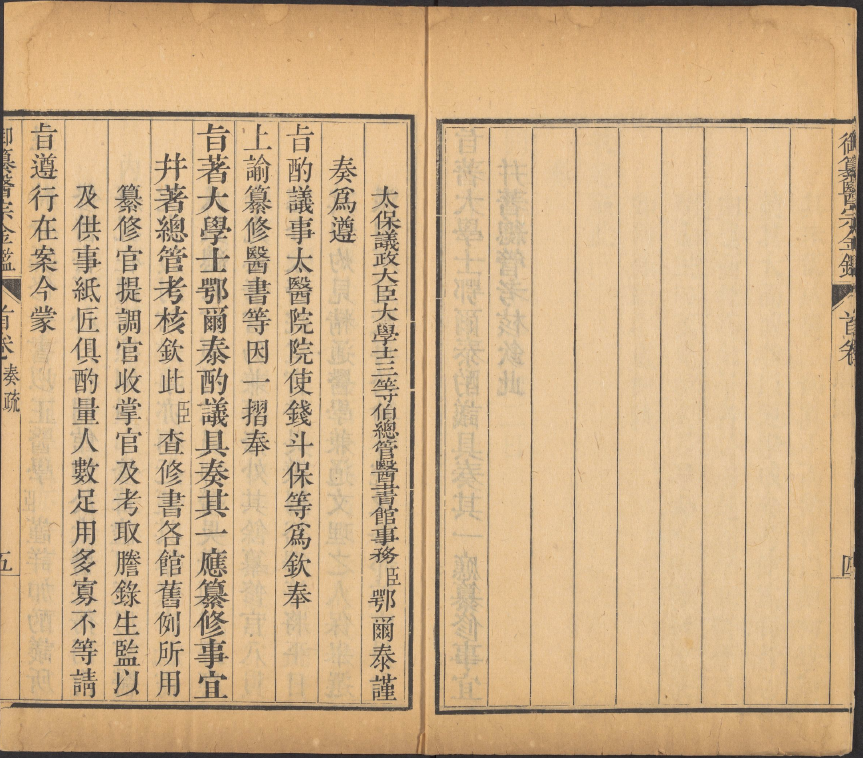 御纂醫宗金鑑
首卷
四
太保議政大臣大學士三等伯總管醫書館事務臣鄂爾泰謹
奏爲遵
旨酌議事太醫院院使錢斗保等爲欽奉
上諭纂修醫書等因一摺奉
旨著大學士鄂爾泰酌議具奏其一應纂修事宜
并著總管考核欽此臣查修書各館舊例所用
纂修官提調官收掌官及考取謄錄生監以
及供事紙匠俱酌量人數足用多寡不等請
旨遵行在案今蒙
御纂醫宗金鑑
首卷
奏疏
五